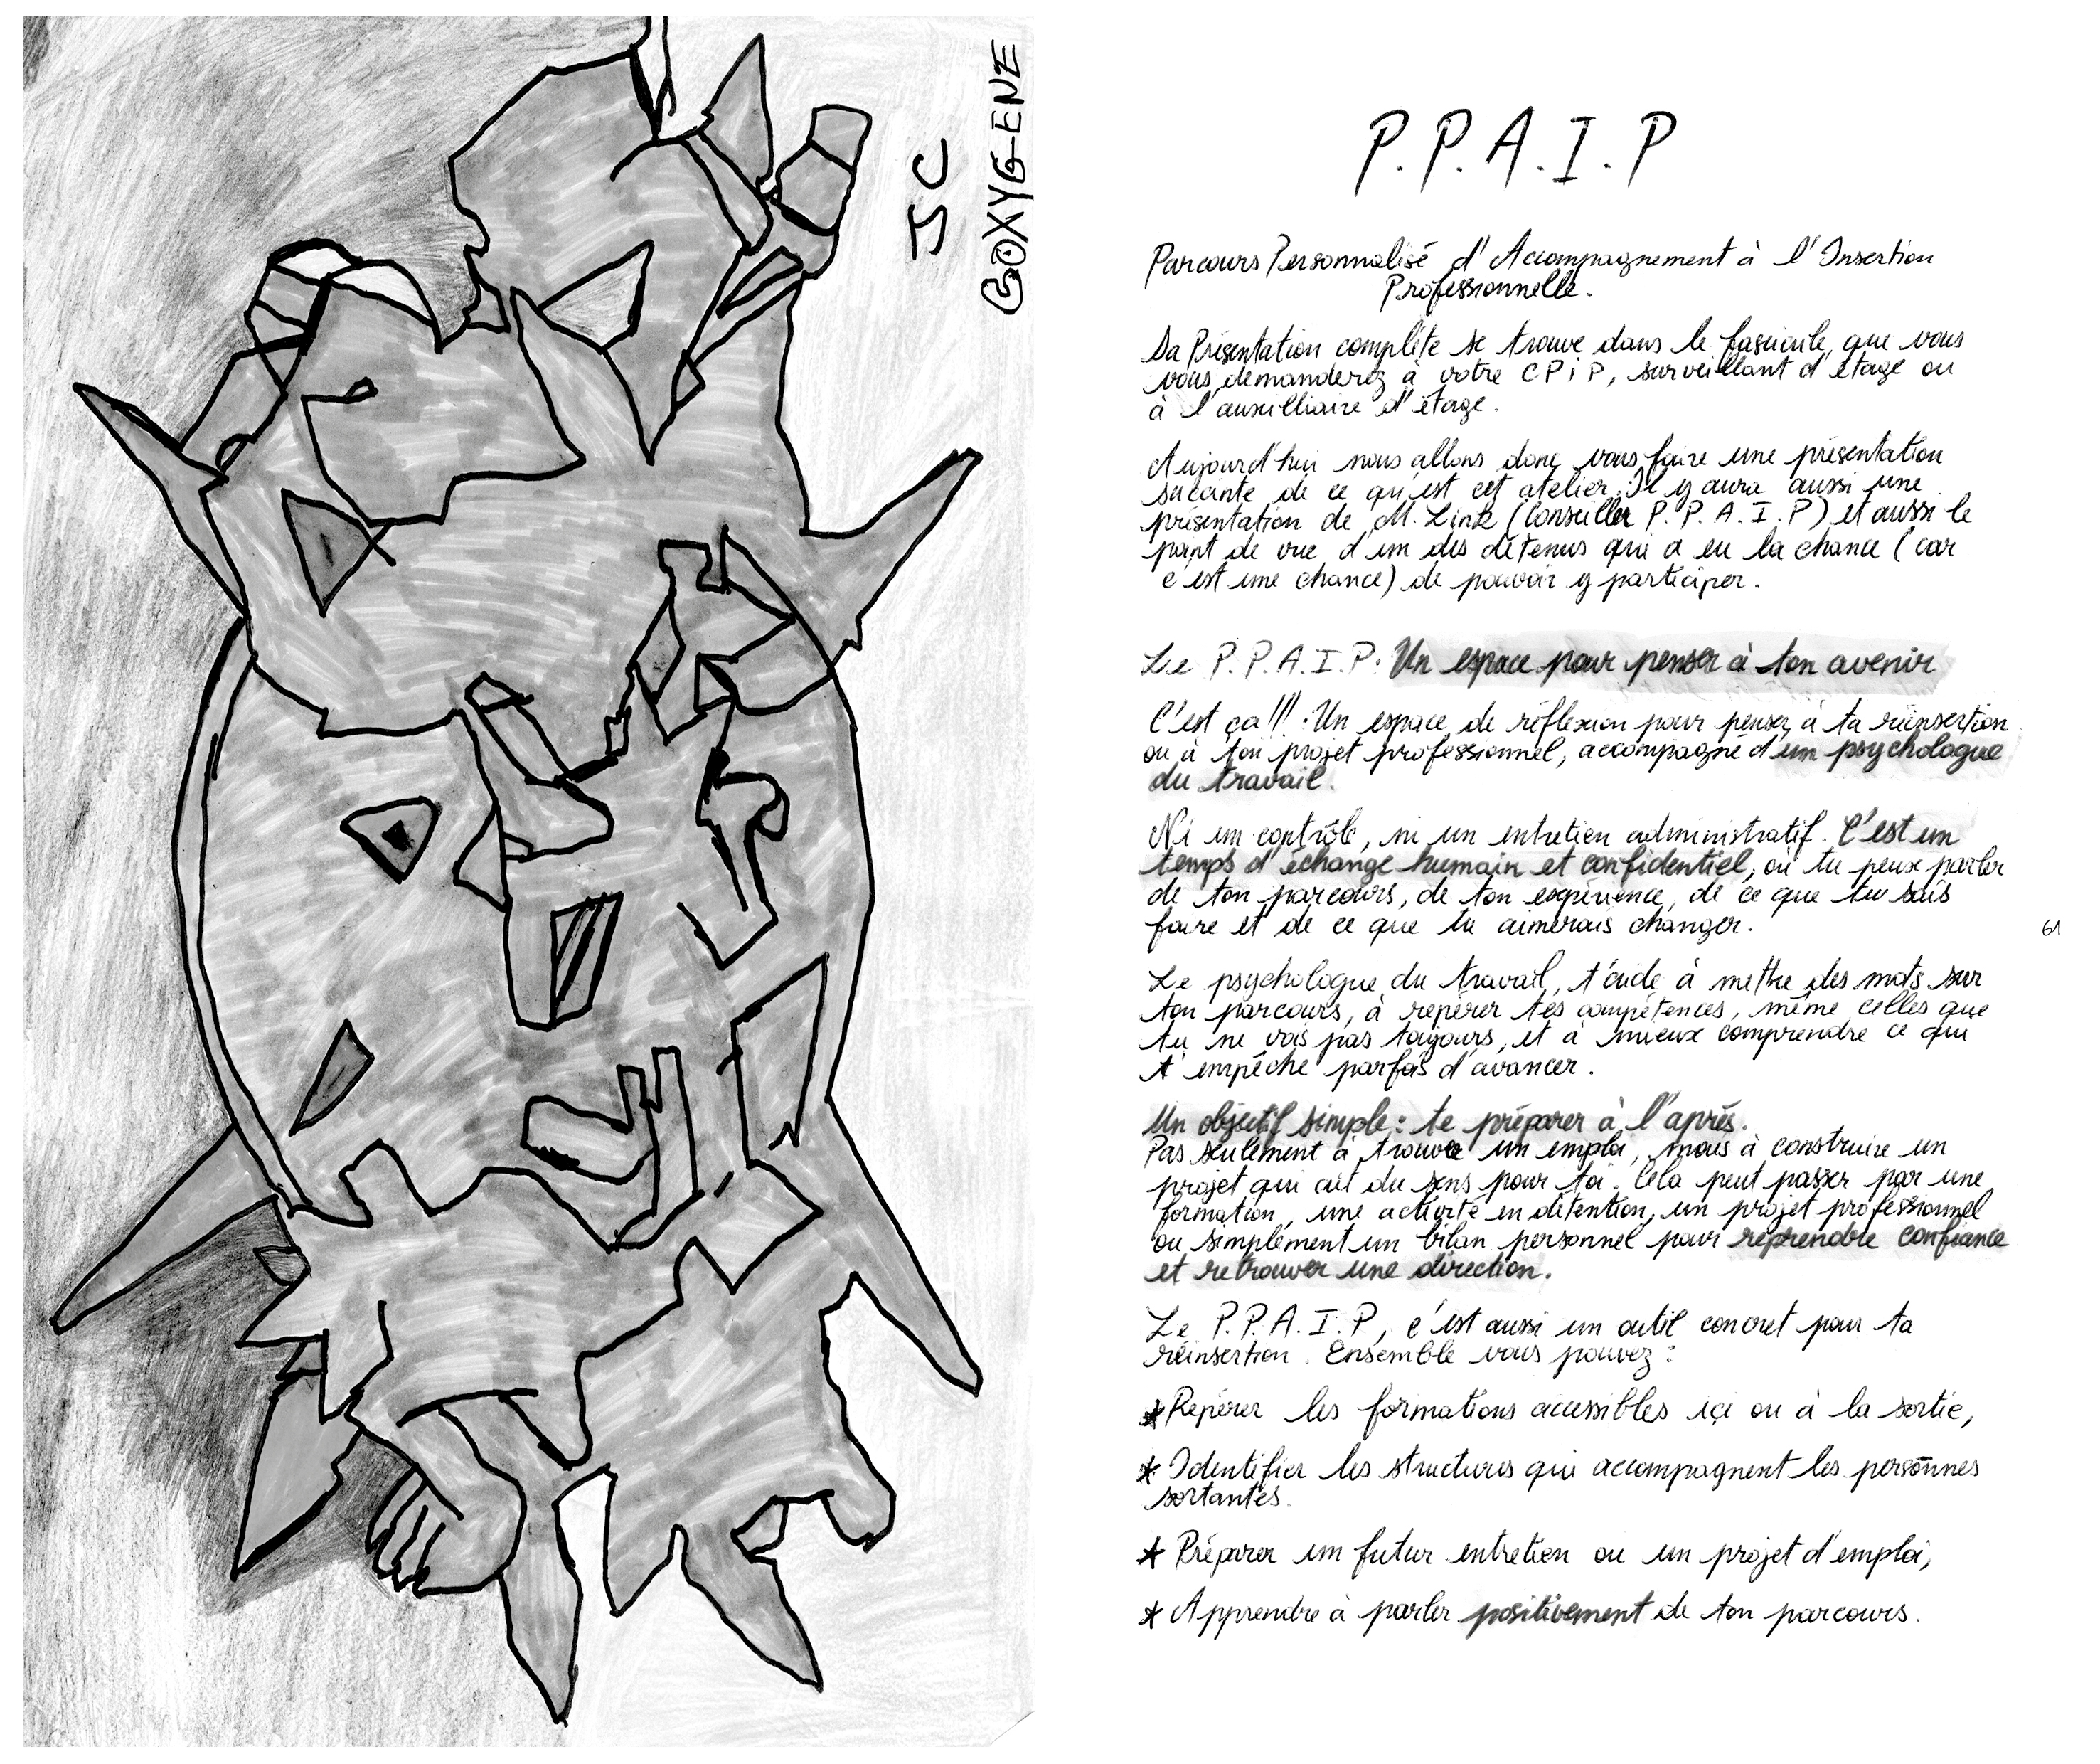 JC
GOXYGENE
P.P.A.I.P
Parcours Personnalisé d'Accompagnement à l'Insertion
Professionnelle.
Sa Présentation complète se trouve dans le fascicule, que vous
vous demanderez à votre CPiP, surveillant d'étage ou
à l'auxilliaire d'étage.
Aujourd'hui nous allons donc vous faire une présentation
sucinte de ce qu'est cet atelier. Il y aura aussi une
présentation de M. Lintz (Conseiller P.P.A.I.P) et aussi le
point de vue d'un des détenus qui a eu la chance (car
c'est une chance) de pouvoir y participer.
Le P.P.A.I.P: Un espace pour penser à ton avenir
C'est ça!!! Un espace de réflexion pour penser à ta réinsertion
ou à ton projet professionnel, accompagné d'un psychologue
du travail.
Ni un contrôle, ni un entretien administratif. C'est un
temps d'échange humain et confidentiel, où tu peux parler
de ton parcours, de ton expérience, de ce que tu sais
faire et de ce que tu aimerais changer.
61
Le psychologue du travail, t'aide à mettre des mots sur
ton parcours, à repérer tes compétences, même celles que
tu ne vois pas toujours, et à mieux comprendre ce qui
t'empêche parfois d'avancer.
Un objectif simple: te préparer à l'après.
Pas seulement à trouver un emploi, mais à construire un
projet qui ait du sens pour toi. Cela peut passer par une
formation, une activité en détention, un projet professionnel
ou simplement un bilan personnel pour reprendre confiance
et retrouver une direction.
Le P.P.A.I.P, c'est aussi un outil concret pour ta
réinsertion. Ensemble vous pouvez:
* Repérer les formations accessibles ici ou à la sortie,
* Identifier les structures qui accompagnent les personnes
sortantes.
* Préparer un futur entretien ou un projet d'emploi,
* Apprendre à parler positivement de ton parcours.